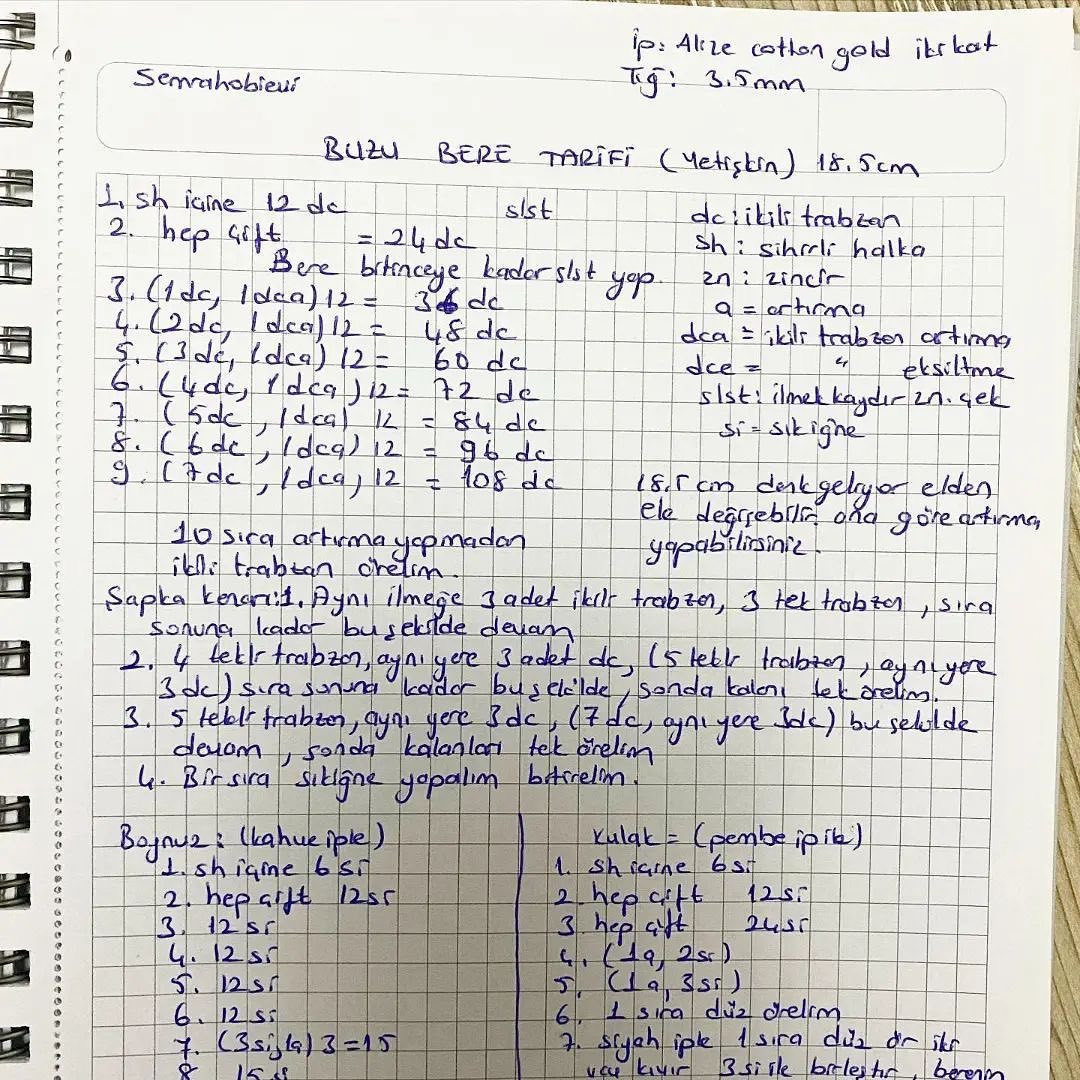 ip: Alize cotton gold iki kat
Tığ: 3.5mm
Semrahobievi
BUZU BERE TARİFİ (Yetişkin) 18.5cm
1. sh içine 12 dc slst
2. hep çift = 24 dc
Bere bitinceye kadar slst yap.
3. (1dc, 1dca) 12 = 36 dc
4. (2dc, 1dca) 12 = 48 dc
5. (3dc, 1dca) 12 = 60 dc
6. (4dc, 1dca) 12 = 72 dc
7. (5dc, 1dca) 12 = 84 dc
8. (6dc, 1dca) 12 = 96 dc
9. (7dc, 1dca) 12 = 108 dc
10 sıra artırma yapmadan
ikili trabzan örelim.
dc: ikili trabzan
sh: sihirli halka
zn: zincir
a = artırma
dca = ikili trabzan artırma
dce = " eksiltme
slst: ilmek kaydır zn. çek
si = sık iğne
18.5 cm denk geliyor elden
ele değişebilir ona göre artırma
yapabilirsiniz.
Şapka kenarı: 1. Aynı ilmeğe 3 adet ikili trabzan, 3 tek trabzan, sıra
sonuna kadar bu şekilde devam
2. 4 tekli trabzan, aynı yere 3 adet dc, (5 tekli trabzan, aynı yere
3dc) sıra sonuna kadar bu şekilde, sonda kalanı tek örelim.
3. 5 tekli trabzan, aynı yere 3dc, (7dc, aynı yere 3dc) bu şekilde
devam, sonda kalanları tek örelim
4. Bir sıra sıkiğne yapalım bitirelim.
Boynuz: (kahve iple)
1. sh içine 6 si
2. hep çift 12si
3. 12 si
4. 12 si
5. 12si
6. 12 si
7. (3si,1a) 3 = 15
8. 15 si
Kulak = (pembe iple)
1. sh içine 6si
2. hep çift 12si
3 hep çift 24si
4. (1a, 2si)
5. (1a, 3si)
6. 1 sıra düz örelim
7. siyah iple 1 sıra düz ör iki
ucu kıvır 3 si ile birleştir, berenin